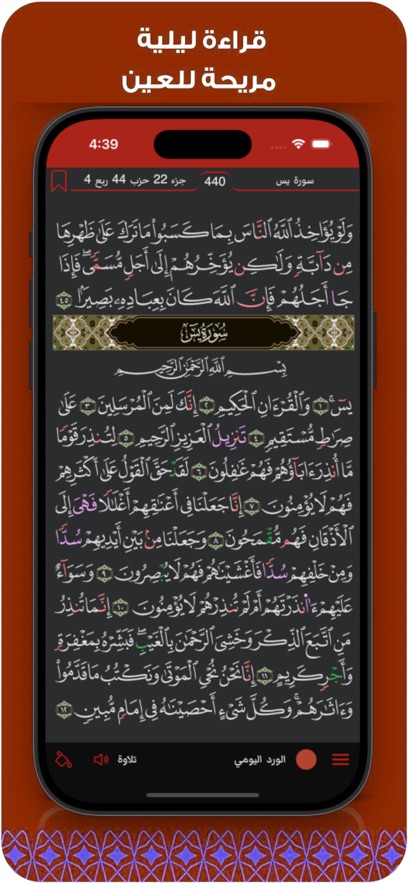 قراءة ليلية
مريحة للعين
4:39
سورة يس
440
جزء 22 حزب 44 ربع 4
وَلَوْ يُؤَاخِذُ اللَّهُ النَّاسَ بِمَا كَسَبُواْ مَا تَرَكَ عَلَىٰ ظَهْرِهَا
مِن دَآبَّةٍ وَلَٰكِن يُؤَخِّرُهُمْ إِلَىٰ أَجَلٍ مُّسَمًّى فَإِذَا
جَا أَجَلُهُمْ فَإِنَّ اللَّهَ كَانَ بِعِبَادِهِ بَصِيرًا ٤٥
سُورَةُ يسٓ
بِسْمِ اللَّهِ الرَّحْمَٰنِ الرَّحِيمِ
يسٓ ١ وَالْقُرْءَانِ الْحَكِيمِ ٢ إِنَّكَ لَمِنَ الْمُرْسَلِينَ ٣ عَلَىٰ
صِرَٰطٍ مُّسْتَقِيمٍ ٤ تَنزِيلُ الْعَزِيزِ الرَّحِيمِ ٥ لِتُنذِرَ قَوْمًا
مَّا أُنذِرَ ءَابَاؤُهُمْ فَهُمْ غَٰفِلُونَ ٦ لَقَدْ حَقَّ الْقَوْلُ عَلَىٰ أَكْثَرِهِمْ
فَهُمْ لَا يُؤْمِنُونَ ٧ إِنَّا جَعَلْنَا فِي أَعْنَٰقِهِمْ أَغْلَٰلًا فَهْيَ إِلَى
الْأَذْقَانِ فَهُم مُّقْمَحُونَ ٨ وَجَعَلْنَا مِن بَيْنِ أَيْدِيهِمْ سُدًّا
وَمِنْ خَلْفِهِمْ سُدًّا فَأَغْشَيْنَٰهُمْ فَهُمْ لَا يُبْصِرُونَ ٩ وَسَوَاءٌ
عَلَيْهِمْ ءَاْنذَرْتَهُمْ أَمْ لَمْ تُنذِرْهُمْ لَا يُؤْمِنُونَ ١٠ إِنَّمَا تُنذِرُ
مَنِ اتَّبَعَ الذِّكْرَ وَخَشِيَ الرَّحْمَٰنَ بِالْغَيْبِ فَبَشِّرْهُ بِمَغْفِرَةٍ
وَأَجْرٍ كَرِيمٍ ١١ إِنَّا نَحْنُ نُحْيِ الْمَوْتَىٰ وَنَكْتُبُ مَا قَدَّمُواْ
وَءَاثَٰرَهُمْ وَكُلَّ شَيْءٍ أَحْصَيْنَٰهُ فِي إِمَامٍ مُّبِينٍ ١٢
الورد اليومي
تلاوة